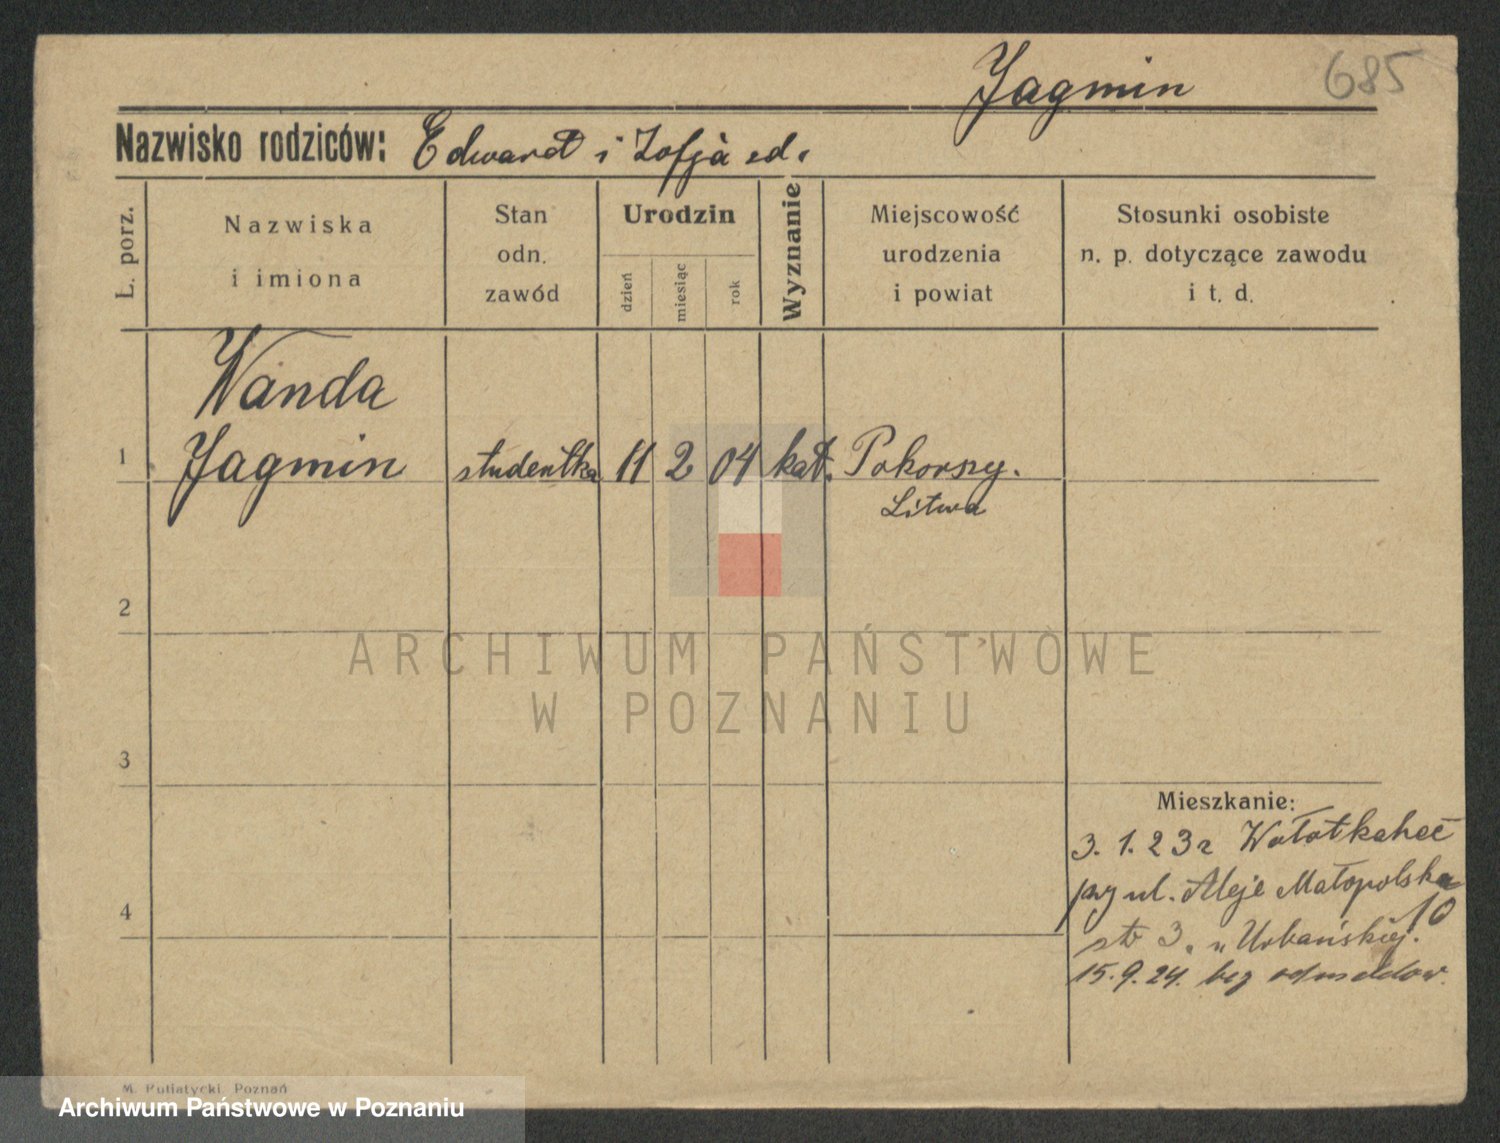 Jagmin 685
Nazwisko rodziców: Edward i Zofja ed.
L. porz.
Nazwiska
i imiona
Stan
odn.
zawód
Urodzin
dzień
miesiąc
rok
Wyznanie
Miejscowość
urodzenia
i powiat
Stosunki osobiste
n. p. dotyczące zawodu
i t. d.
Wanda
1 Jagmin studentka 11 2 04 kat. Pokorszy.
Litwa
2
ARCHIWUM PAŃSTWOWE
W POZNANIU
3
Mieszkanie:
3. 1. 23 r
4
ul. Aleje Małopolska
10
3. u Urbańskiej.
15. 9. 24. bez odmeldow.
M. Putiatycki, Poznań
Archiwum Państwowe w Poznaniu